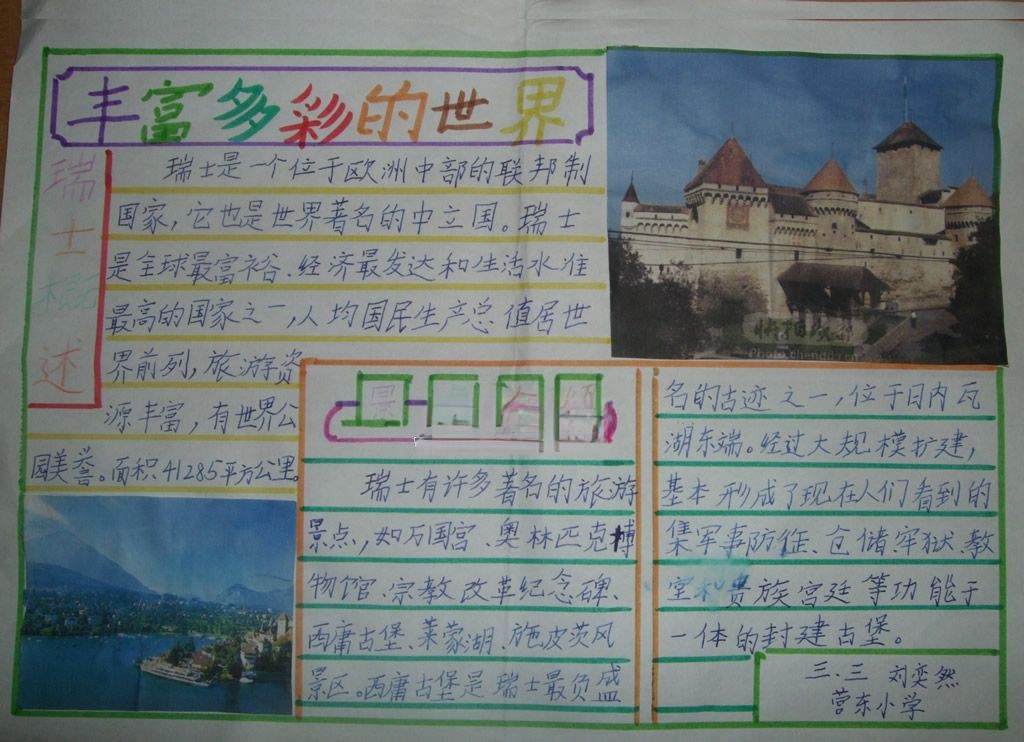 丰富多彩的世界
瑞士概述
瑞士是一个位于欧洲中部的联邦制
国家,它也是世界著名的中立国。瑞士
是全球最富裕、经济最发达和生活水准
最高的国家之一,人均国民生产总值居世
界前列,旅游资
源丰富,有世界公
园美誉。面积41285平方公里。
景
瑞士有许多著名的旅游
景点,如万国宫、奥林匹克博
物馆、宗教改革纪念碑、
西庸古堡、莱蒙湖、施皮茨风
景区。西庸古堡是瑞士最负盛
名的古迹之一,位于日内瓦
湖东端。经过大规模扩建,
基本形成了现在人们看到的
集军事防住、仓储、牢狱、教
堂和贵族宫廷等功能于
一体的封建古堡。
三.三 刘奕然
营东小学